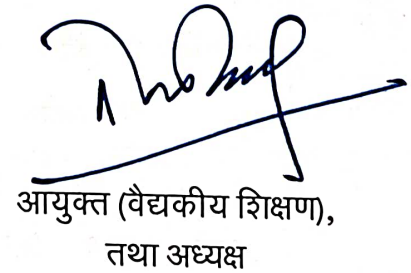 आयुक्त (वैद्यकीय शिक्षण),
तथा अध्यक्ष